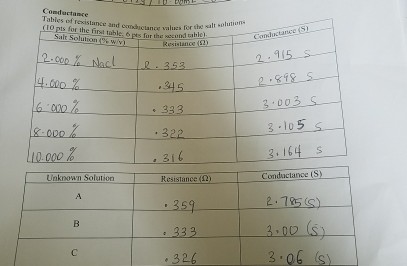 Conductance
Tables of resistance and conductance values for the salt solutions
(10 pts for the first table; 6 pts for the second table)
Salt Solution (% w/v) Resistance (Ω) Conductance (S)
2.000 % Nacl .353 2.915 S
4.000 % .345 2.898 S
6.000 % .333 3.003 S
8.000 % .322 3.105 S
10.000 % .316 3.164 S
Unknown Solution Resistance (Ω) Conductance (S)
A .359 2.785 (S)
B .333 3.00 (S)
C .326 3.06 (S)